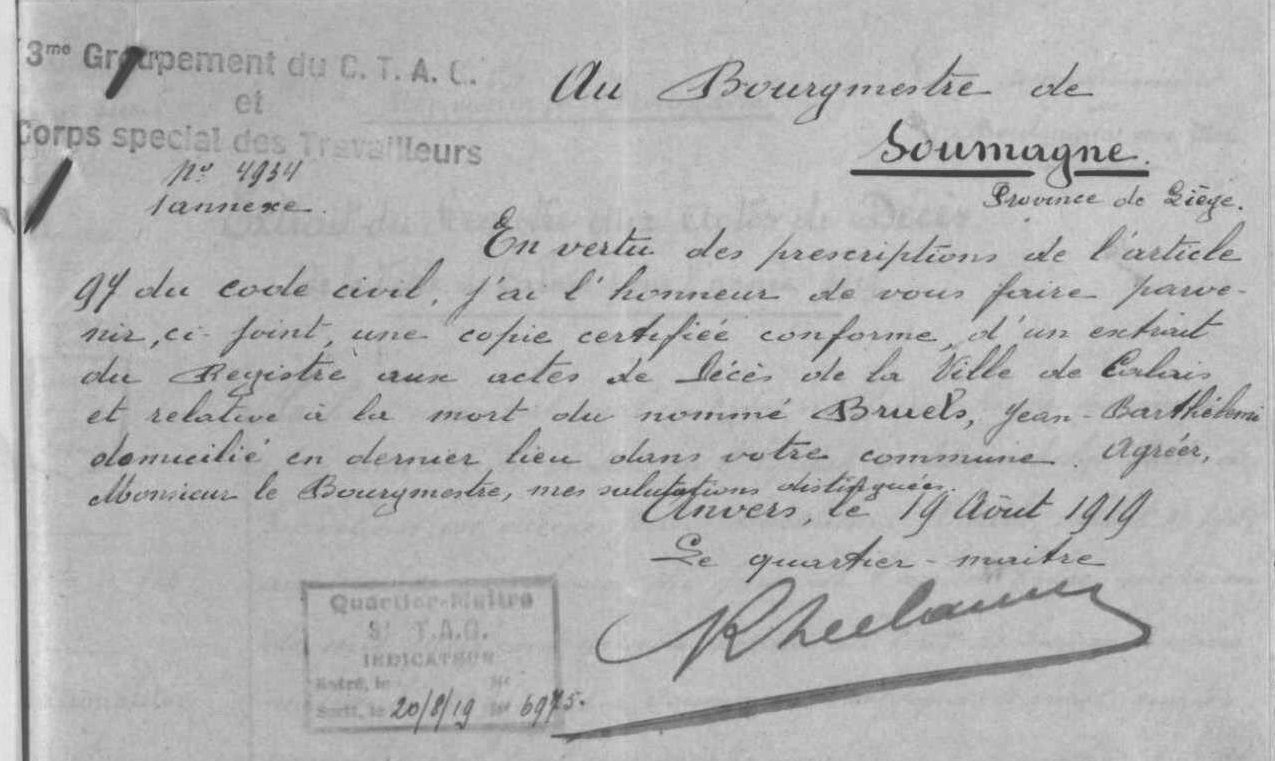 3me Groupement du C. T. A. C.
et
Corps special des Travailleurs
No 4934
1 annexe.
Au Bourgmestre de
Soumagne.
Province de Liège.
En vertu des prescriptions de l'article
97 du code civil, j'ai l'honneur de vous faire parve-
nir, ci-joint, une copie certifiée conforme, d'un extrait
du Registre aux actes de Décès de la Ville de Calais
et relative à la mort du nommé Bruels, Jean-Barthélemi
domicilié en dernier lieu dans votre commune. Agréer,
Monsieur le Bourgmestre, mes salutations distinguées.
Anvers, le 19 Août 1919
Le quartier-maitre
Quartier-Maître
3e T.A.C.
INDICATEUR
Entré, le No
Sorti, le 20/8/19 No 6975.